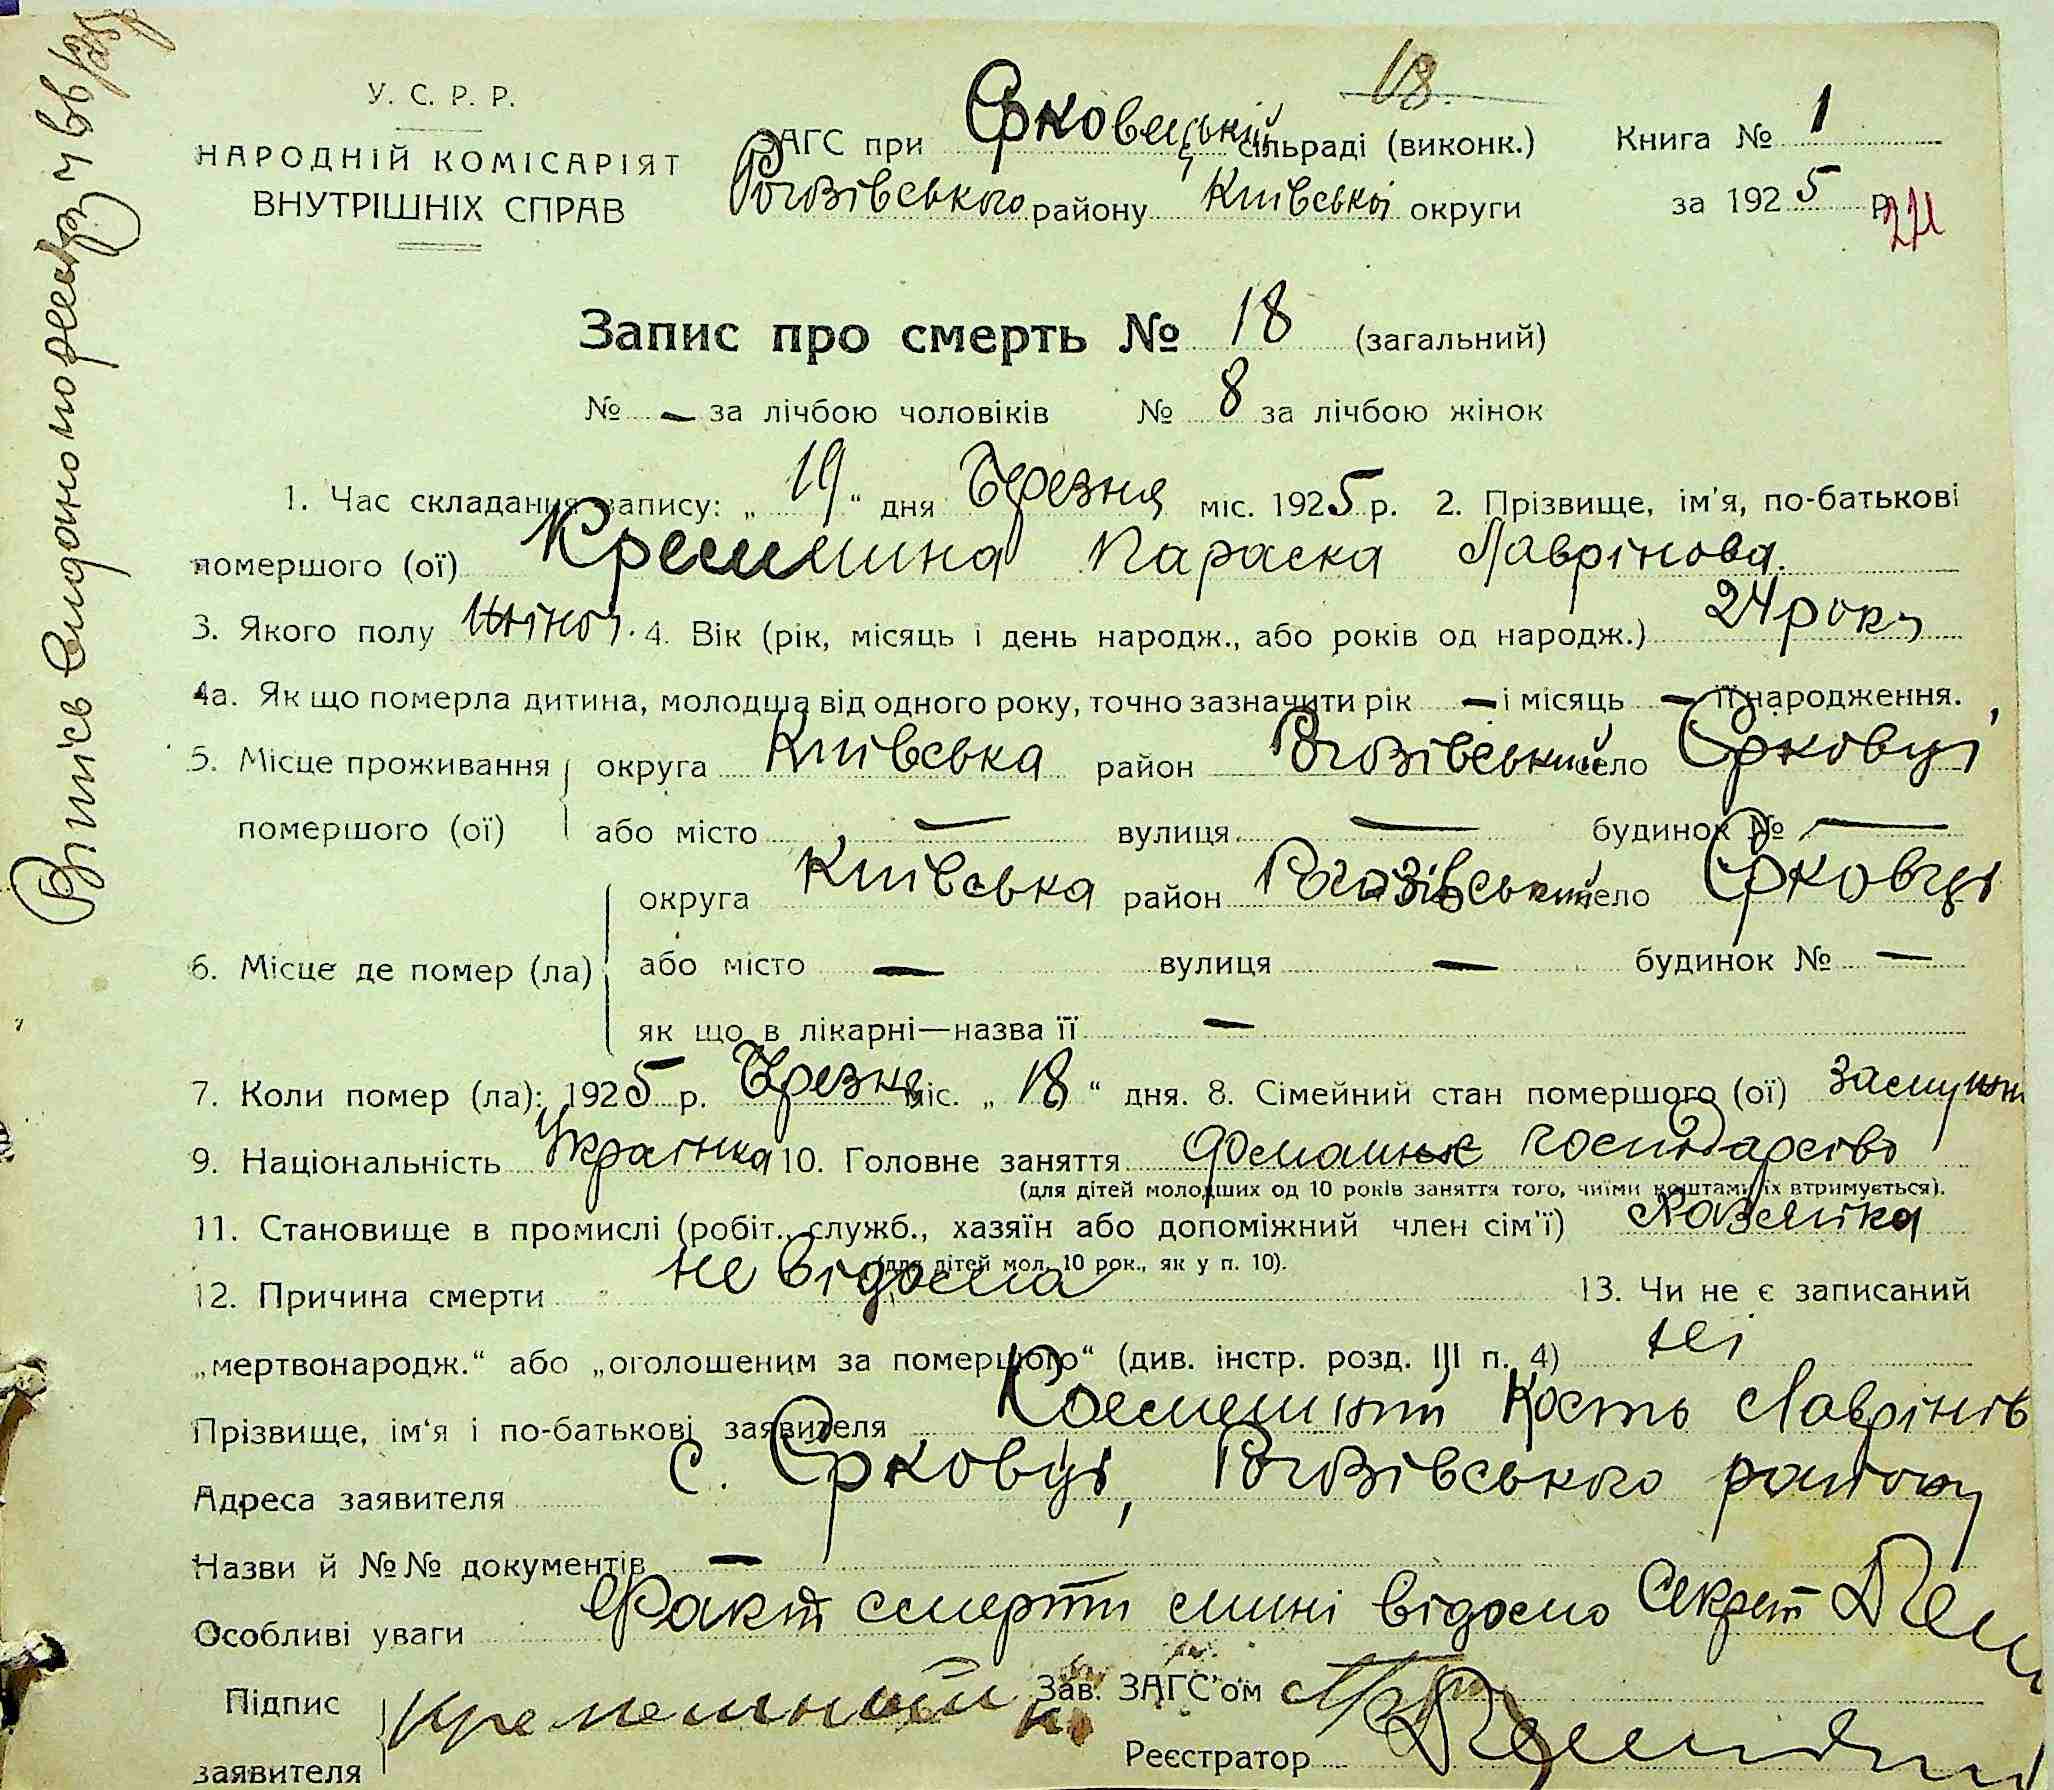 У. С. Р. Р.
НАРОДНІЙ КОМІСАРІЯТ
ВНУТРІШНІХ СПРАВ
18.
ЗАГС при Єрковецькій сільраді (виконк.)
Рогозівського району Київської округи
Книга № 1
за 1925 р.
Запис про смерть № 18 (загальний)
№ — за лічбою чоловіків № 8 за лічбою жінок
1. Час складання запису: „ 19 “ дня Березня міс. 1925 р. 2. Прізвище, ім'я, по-батькові
помершого (ої) Параска Лаврінова.
3. Якого полу жіноч. 4. Вік (рік, місяць і день народж., або років од народж.) 24 року
4а. Як що померла дитина, молодша від одного року, точно зазначити рік — і місяць — її народження.
5. Місце проживання округа Київська район Рогозівський село Єрковці,
помершого (ої) або місто — вулиця — будинок № —
округа Київська район Рогозівський село Єрковці
6. Місце де помер (ла) або місто — вулиця — будинок № —
як що в лікарні—назва її —
7. Коли помер (ла): 1925 р. Березня міс. „ 18 “ дня. 8. Сімейний стан помершого (ої) замужн
9. Національність Українка 10. Головне заняття домашнє господарство
(для дітей молодших од 10 років заняття того, чиїми коштами їх втримується).
11. Становище в промислі (робіт., служб., хазяїн або допоміжний член сім'ї) Хазяйка
(для дітей мол. 10 рок., як у п. 10).
12. Причина смерти не відома 13. Чи не є записаний
„мертвонародж.“ або „оголошеним за помершого“ (див. інстр. розд. III п. 4) ні
Прізвище, ім'я і по-батькові заявителя Кость Лаврінів
Адреса заявителя с. Єрковці, Рогозівського району
Назви й №№ документів —
Особливі уваги Факт смерти мині відомо Секрет
Підпис
заявителя
Зав. ЗАГС'ом
Реєстратор